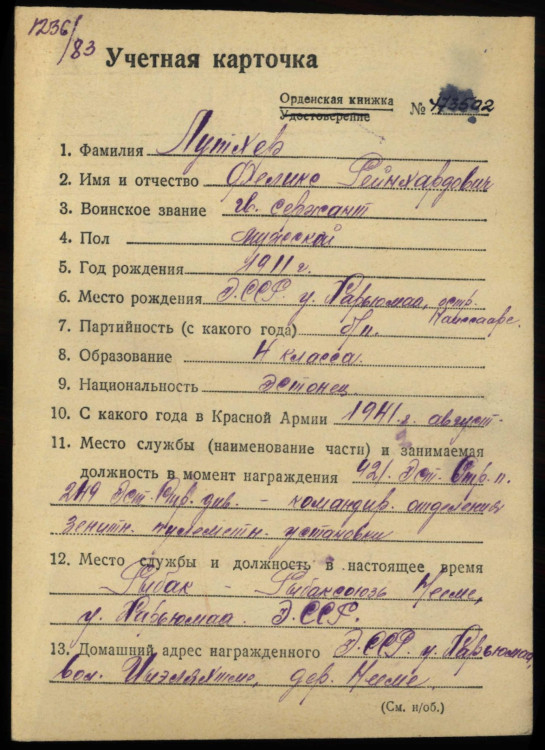 1236/83
Учетная карточка
Орденская книжка
Удостоверение
№ 473502
1. Фамилия Лутхев
2. Имя и отчество Феликс Рейнхардович
3. Воинское звание гв. сержант
4. Пол мужской
5. Год рождения 1911 г.
6. Место рождения Э.ССР. у. Харьюмаа, остр.
7. Партийность (с какого года) б/п.
8. Образование 4 класса.
9. Национальность эстонец
10. С какого года в Красной Армии 1941 г. август.
11. Место службы (наименование части) и занимаемая
должность в момент награждения 921. Эст. Стр. п.
249 Эст. Стр. див. - командир. отделения
зенитн. пулеметн. установки
12. Место службы и должность в настоящее время
Рыбак - Рыбаксоюзь Неэме,
у. Харьюмаа. Э.ССР.
13. Домашний адрес награжденного Э.ССР. у. Харьюмаа,
вол. дер. Неэме
(См. н/об.)